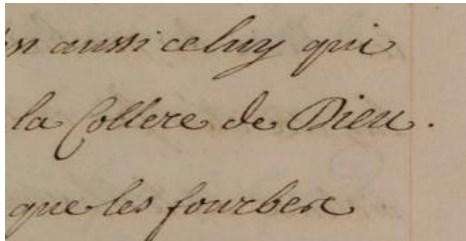 aussi celuy qui
la Collere de Dieu.
que les fourbes